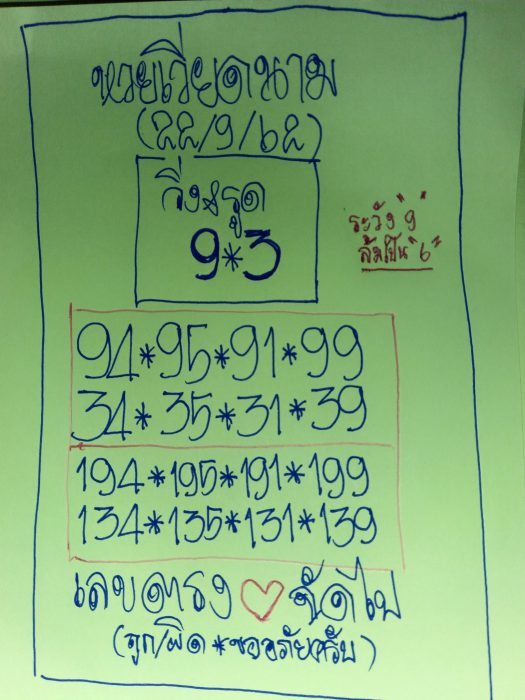 หวยเวียดนาม
(22/9/62)
วิ่ง&รูด
9*3
ระวัง "9"
ล้มเป็น "6"
94*95*91*99
34*35*31*39
194*195*191*199
134*135*131*139
เลขตรง ♡ จัดไป
(ถูก/ผิด*ขออภัยครับ)